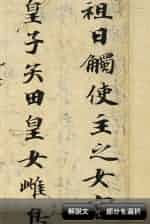 祖日觸使主之女
皇子矢田皇女雌
解説文
部分を選択